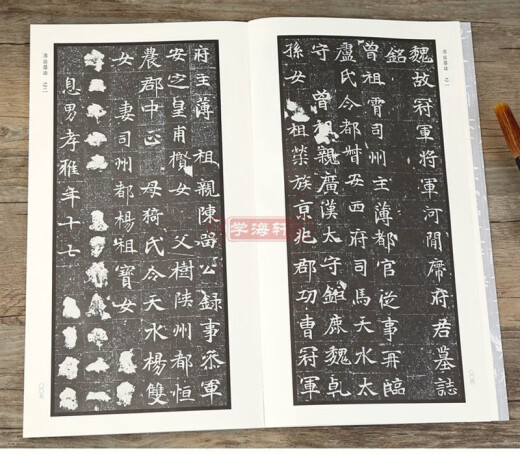 魏故冠軍將軍河間席府君墓誌
銘
曾祖霄司州主薄都官從事再臨
盧氏令都督安西府司馬天水太
守 曾祖親廣漢太守鉅鹿魏
孫女 祖榮族京兆郡功曹冠軍
府主薄 祖親陳留公錄事參軍
安定皇甫欑女 父樹陝州都恒
農郡中正 母猗氏令天水楊雙
女 妻司州都楊祖寶女
息男孝雅年十七
学海轩